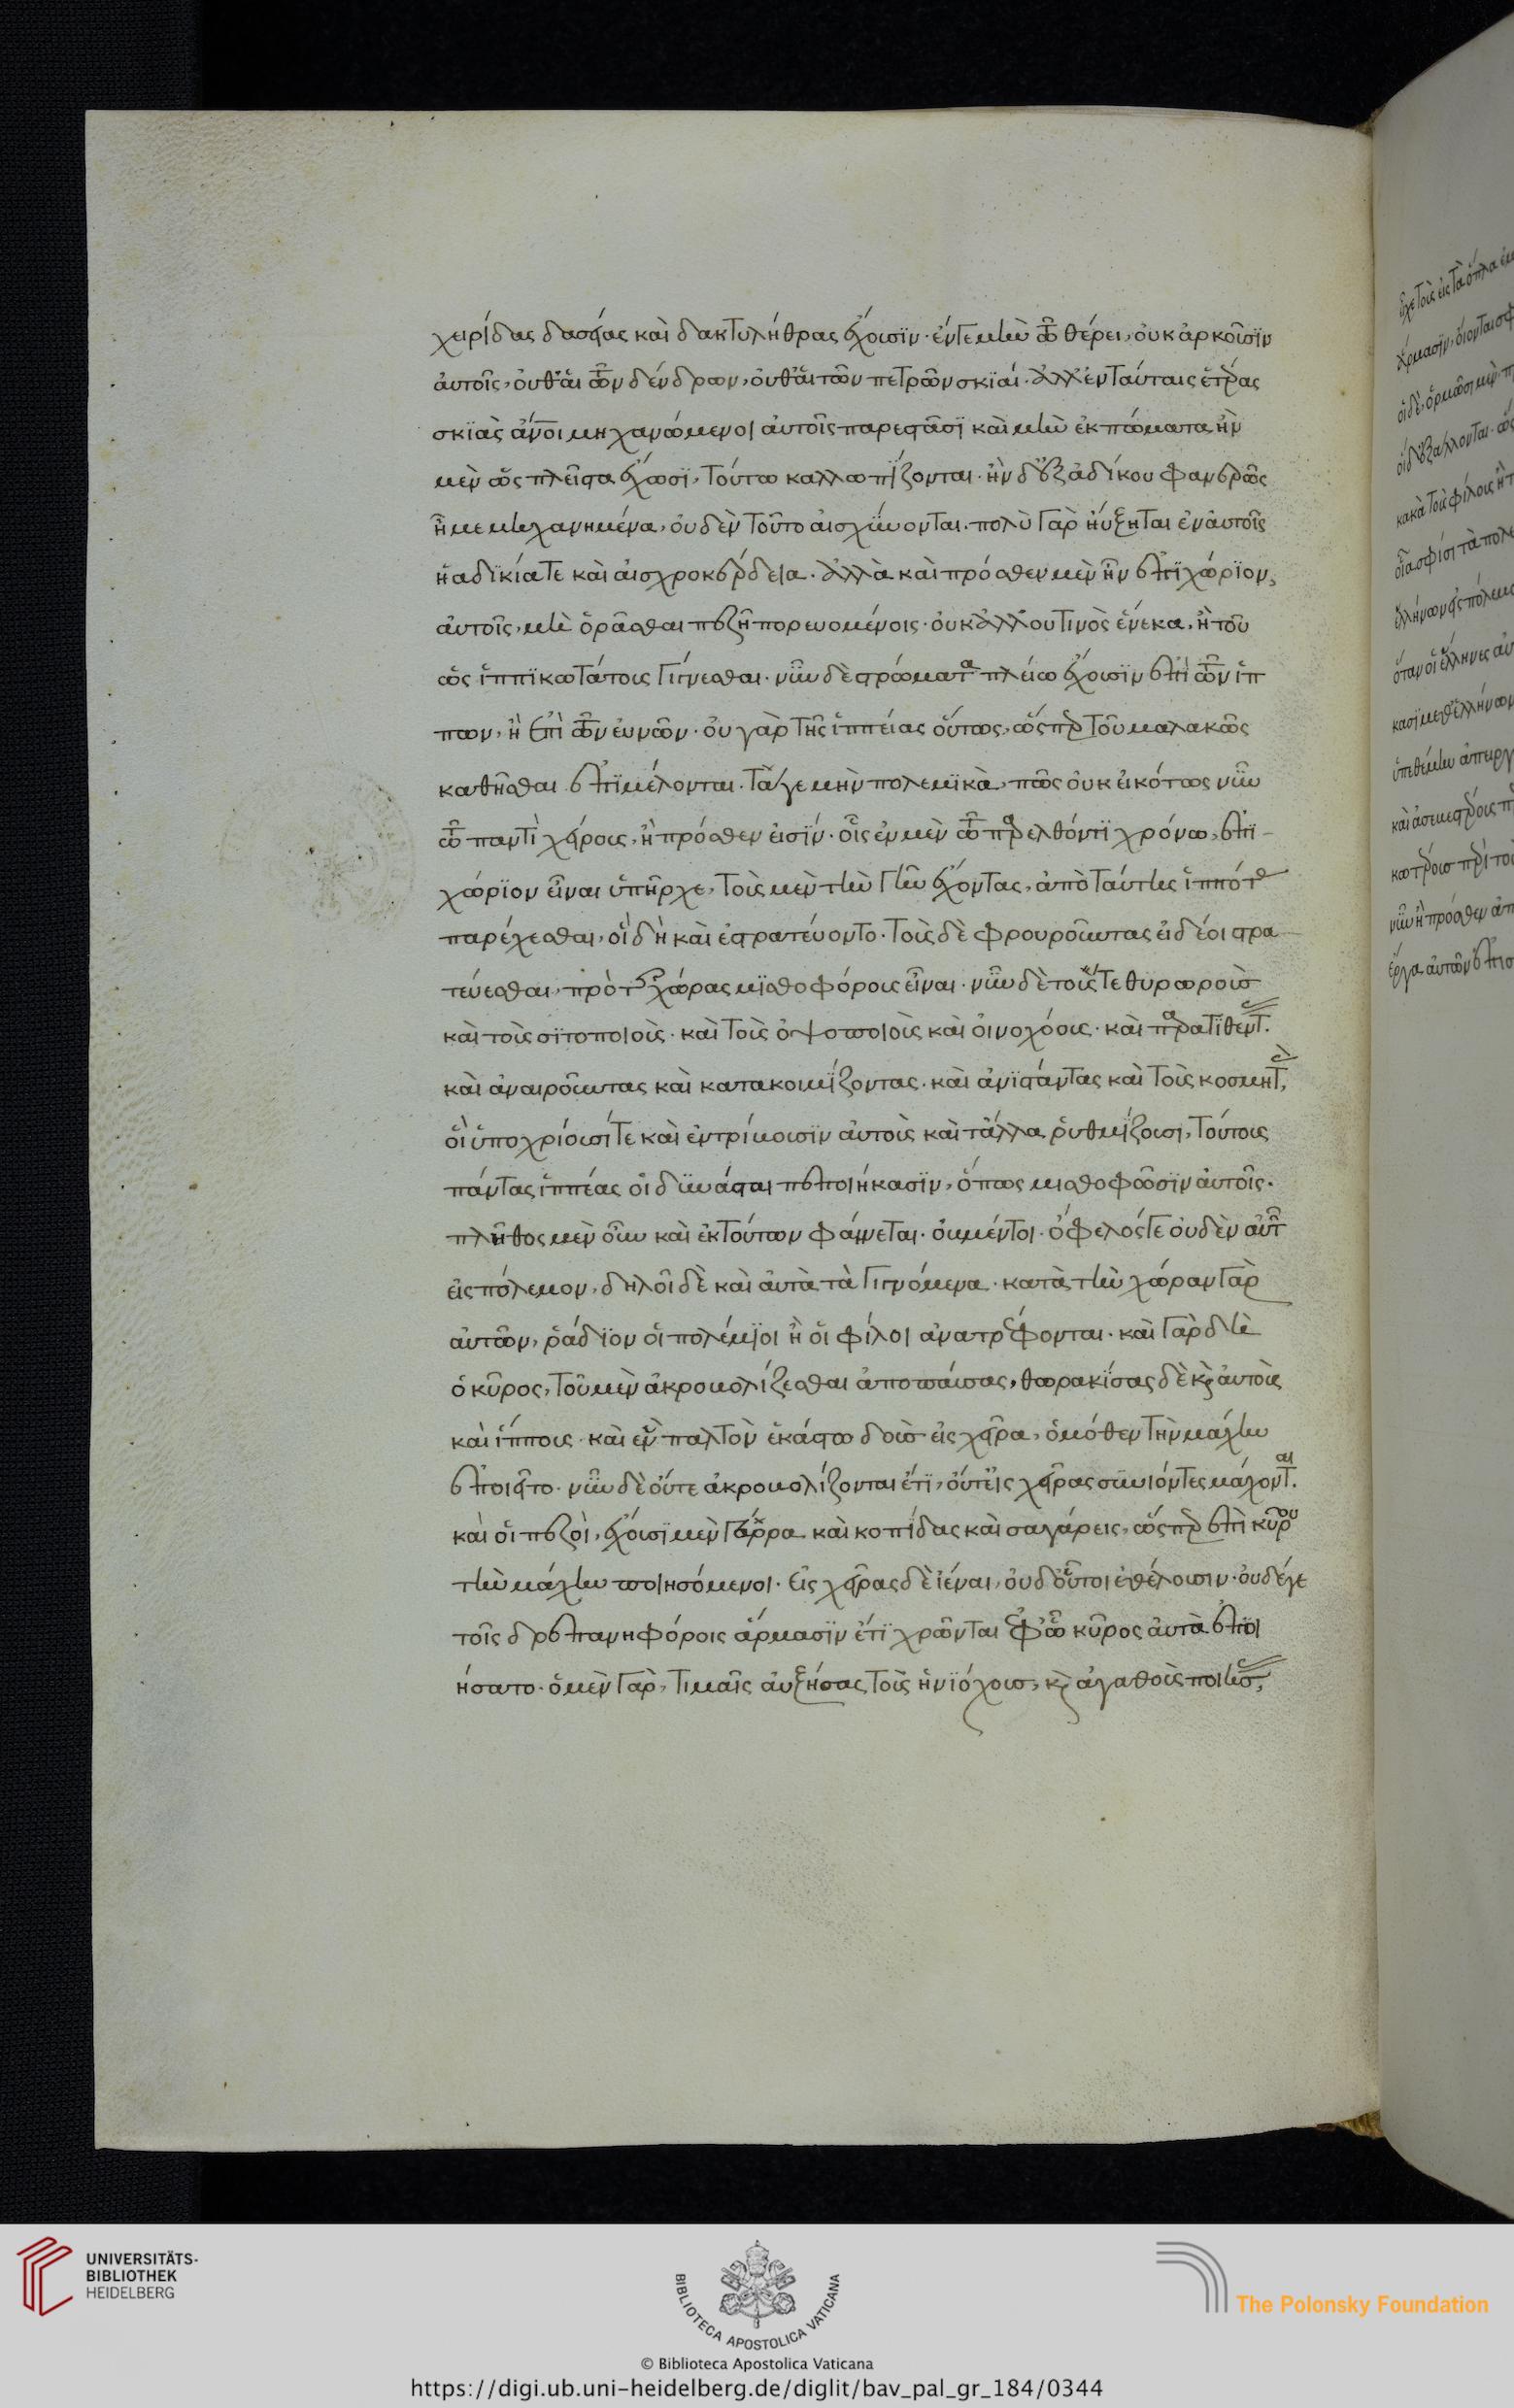 χειρίδας δασείας καὶ δακτυλήθρας ἔχουσϊν· ἔν γε μὴν τῶ θέρει, οὐκ ἀρκοῦσϊν
ἀυτοῖς, ὀυθ' ἁι τῶν δένδρων, ὀυθ' ἁι τῶν πετρῶν σκϊαί· ἀλλ' ἐν ταύταις ἑτέρας
σκϊὰς ἄνοι μηχανώμενοι ἀυτοῖς παρεστᾶσϊ καὶ μὴν ἐκπώματα ἢν
μὲν ὡς πλεῖστα ἔχωσϊ, τούτω καλλωπΐζονται· ἢν δ' ἐξ ἀδίκου φανερῶς
ἦ μεμηχανημένα, ὀυδὲν τοῦτο ἀισχΰνονται· πολὺ γὰρ ηὔξηται ἐν ἀυτοῖς
ἡ αδϊκία τε καὶ ἀισχροκέρδεια· ἀλλὰ καὶ πρόσθεν μὲν ἦν ἐπϊχώρϊον,
ἀυτοῖς, μὴ ὁρᾶσθαι πεζῆ πορευομένοις· ὀυκ ἄλλου τινὸς ἕνεκα, ἢ τοῦ
ὡς ἱππϊκωτάτους γίγνεσθαι· νῦν δὲ στρώματα πλείω ἔχουσϊν ἐπὶ τῶν ἵπ
πων, ἢ ἐπὶ τῶν ἐυνῶν· ὀυ γὰρ τῆς ἱππείας ὅυτως, ὥς περ τοῦ μαλακῶς
καθῆσθαι ἐπϊμέλονται. τά γε μὴν πολεμϊκὰ, πῶς ὀυκ ἐικότως νῦν
τῶ παντὶ χείρους, ἢ πρόσθεν ἐισΐν· οἷς ἐν μὲν τῶ παρελθόντϊ χρόνω, ἐπϊ-
χώρϊον εἶναι ὑπῆρχε, τοὺς μὲν τὴν γῆν ἔχοντας, ἀπὸ ταύτης ἱππότας
παρέχεσθαι, οἳ δὴ καὶ ἐστρατεύοντο· τοὺς δὲ φρουροῦντας ἐι δέοι στρα
τεύεσθαι, πρὸ τῆς χώρας μϊσθοφόρους εἶναι· νῦν δὲ τούς τε θυρωροὺσ
καὶ τοὺς σϊτοποιοὺς· καὶ τοὺς ὀψοποιοὺς καὶ ὀινοχόους· καὶ παρατϊθέντ.
καὶ ἀναιροῦντας καὶ κατακοιμΐζοντας· καὶ ἀνϊστάντας καὶ τοὺς κοσμητ,
ὁὶ ὑποχρίουσί τε καὶ ἐντρίβουσϊν ἀυτοὺς καὶ τἄλλα ῥυθμΐζουσι, τούτους
πάντας ἱππέας ὁι δϋνάσται πεποιήκασϊν, ὅπως μισθοφῶσϊν ἀυτοῖς.
πλῆθος μὲν οὖν καὶ ἐκ τούτων φάινεται· ὀυ μέντοι· ὄφελός γε ὀυδὲν αὐτ
εἰς πόλεμον, δηλοῖ δὲ καὶ ἀυτὰ τὰ γιγνόμενα· κατὰ τὴν χώραν γὰρ
ἀυτῶν, ῥάδϊον ὁι πολέμϊοι ἢ ὁι φίλοι ἀνατρέφονται· καὶ γὰρ δὴ
ὁ κῦρος, τοῦ μὲν ἀκροβολίζεσθαι ἀποπάυσας, θωρακΐσας δὲ κ ἀυτοὺς
καὶ ἵππους καὶ ἓν παλτὸν ἑκάστω δοὺσ εἰς χεῖρα, ὁμόθεν τὴν μάχην
ἐποιεῖτο· νῦν δὲ ὄυτε ἀκροβολίζονται ἔτϊ, ὄυτ' εἰς χεῖρας συνιόντες μάχονται.
καὶ ὁι πεζοὶ, ἔχουσϊ μὲν γέρρα καὶ κοπίδας καὶ σαγάρεις, ὥς περ ἐπὶ κύρου
τὴν μάχην ποιησόμενοι. Εἰς χεῖρας δὲ ἰέναι, ὀυδ' οὗτοι ἐθέλουσιν· ὀυδέ γε
τοῖς δρεπανηφόροις ἅρμασϊν ἔτϊ χρῶνται ἐφ' ὧ κῦρος ἀυτὰ ἐποι
ήσατο· ὁ μὲν γὰρ, τιμαῖς αὐξήσας τοὺς ἡνϊόχουσ, κ ἀγαθοὺς ποιησ,
UNIVERSITÄTS-
BIBLIOTHEK
HEIDELBERG
BIBLIOTECA APOSTOLICA VATICANA
The Polonsky Foundation
© Biblioteca Apostolica Vaticana
https://digi.ub.uni-heidelberg.de/diglit/bav_pal_gr_184/0344